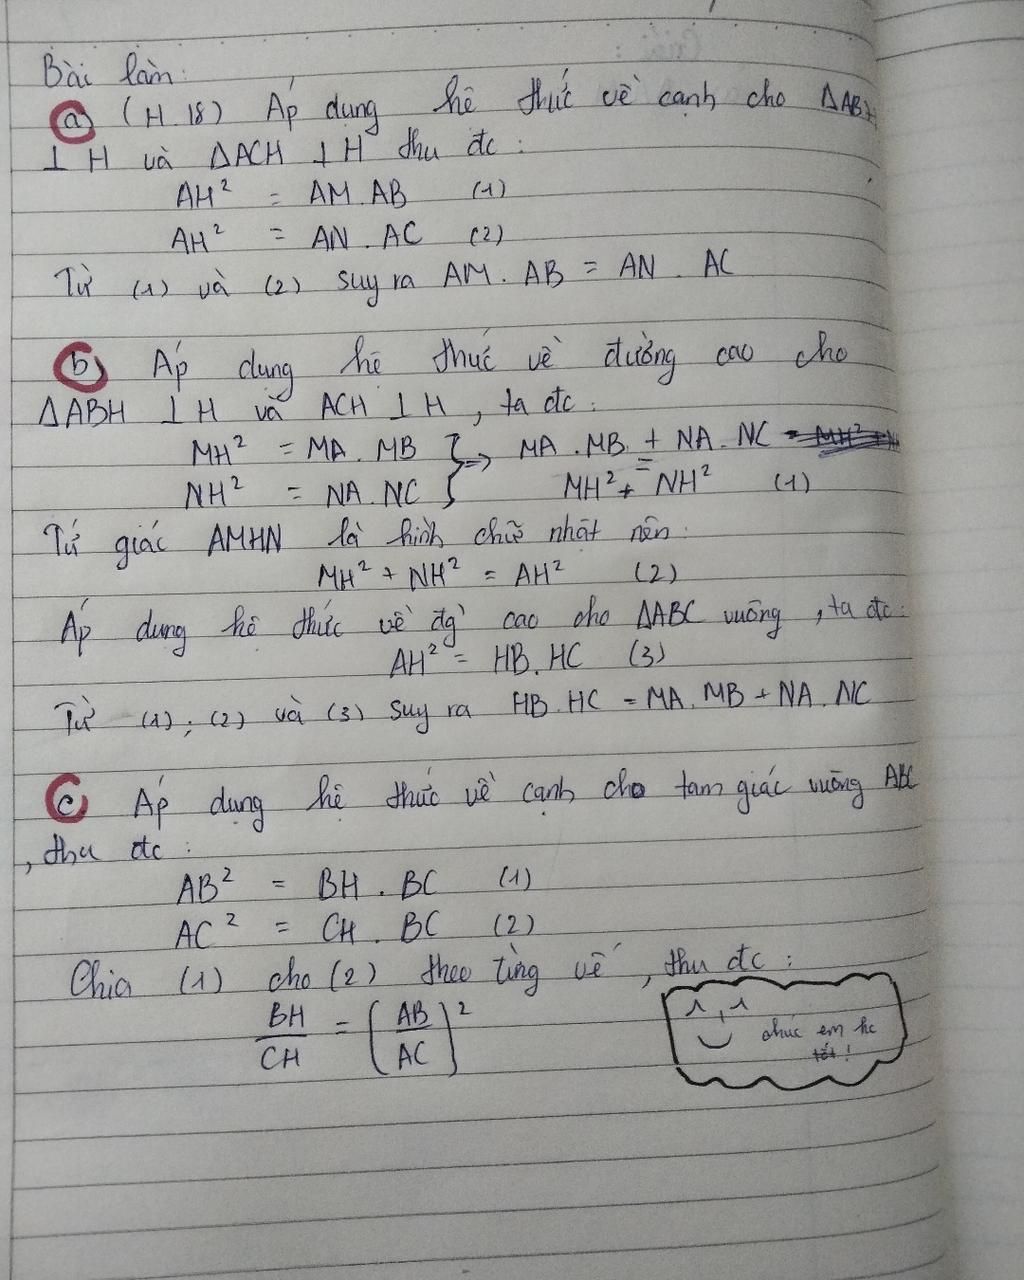 Bài làm:
a) (H.18) Áp dụng hệ thức về cạnh cho ΔABH
⊥ H và ΔACH ⊥ H thu đc:
AH² = AM.AB (1)
AH² = AN.AC (2)
Từ (1) và (2) suy ra AM.AB = AN.AC
b) Áp dụng hệ thức về đường cao cho
ΔABH ⊥ H và ACH ⊥ H, ta đc:
MH² = MA.MB } => MA.MB + NA.NC
NH² = NA.NC } = MH² + NH² (1)
Tứ giác AMHN là hình chữ nhật nên:
MH² + NH² = AH² (2)
Áp dụng hệ thức về đg` cao cho ΔABC vuông, ta đc:
AH² = HB.HC (3)
Từ (1); (2) và (3) suy ra HB.HC = MA.MB + NA.NC
c) Áp dụng hệ thức về cạnh cho tam giác vuông ABC
, thu đc:
AB² = BH.BC (1)
AC² = CH.BC (2)
Chia (1) cho (2) theo từng vế, thu đc:
BH/CH = (AB/AC)²
chúc em hc
tốt!